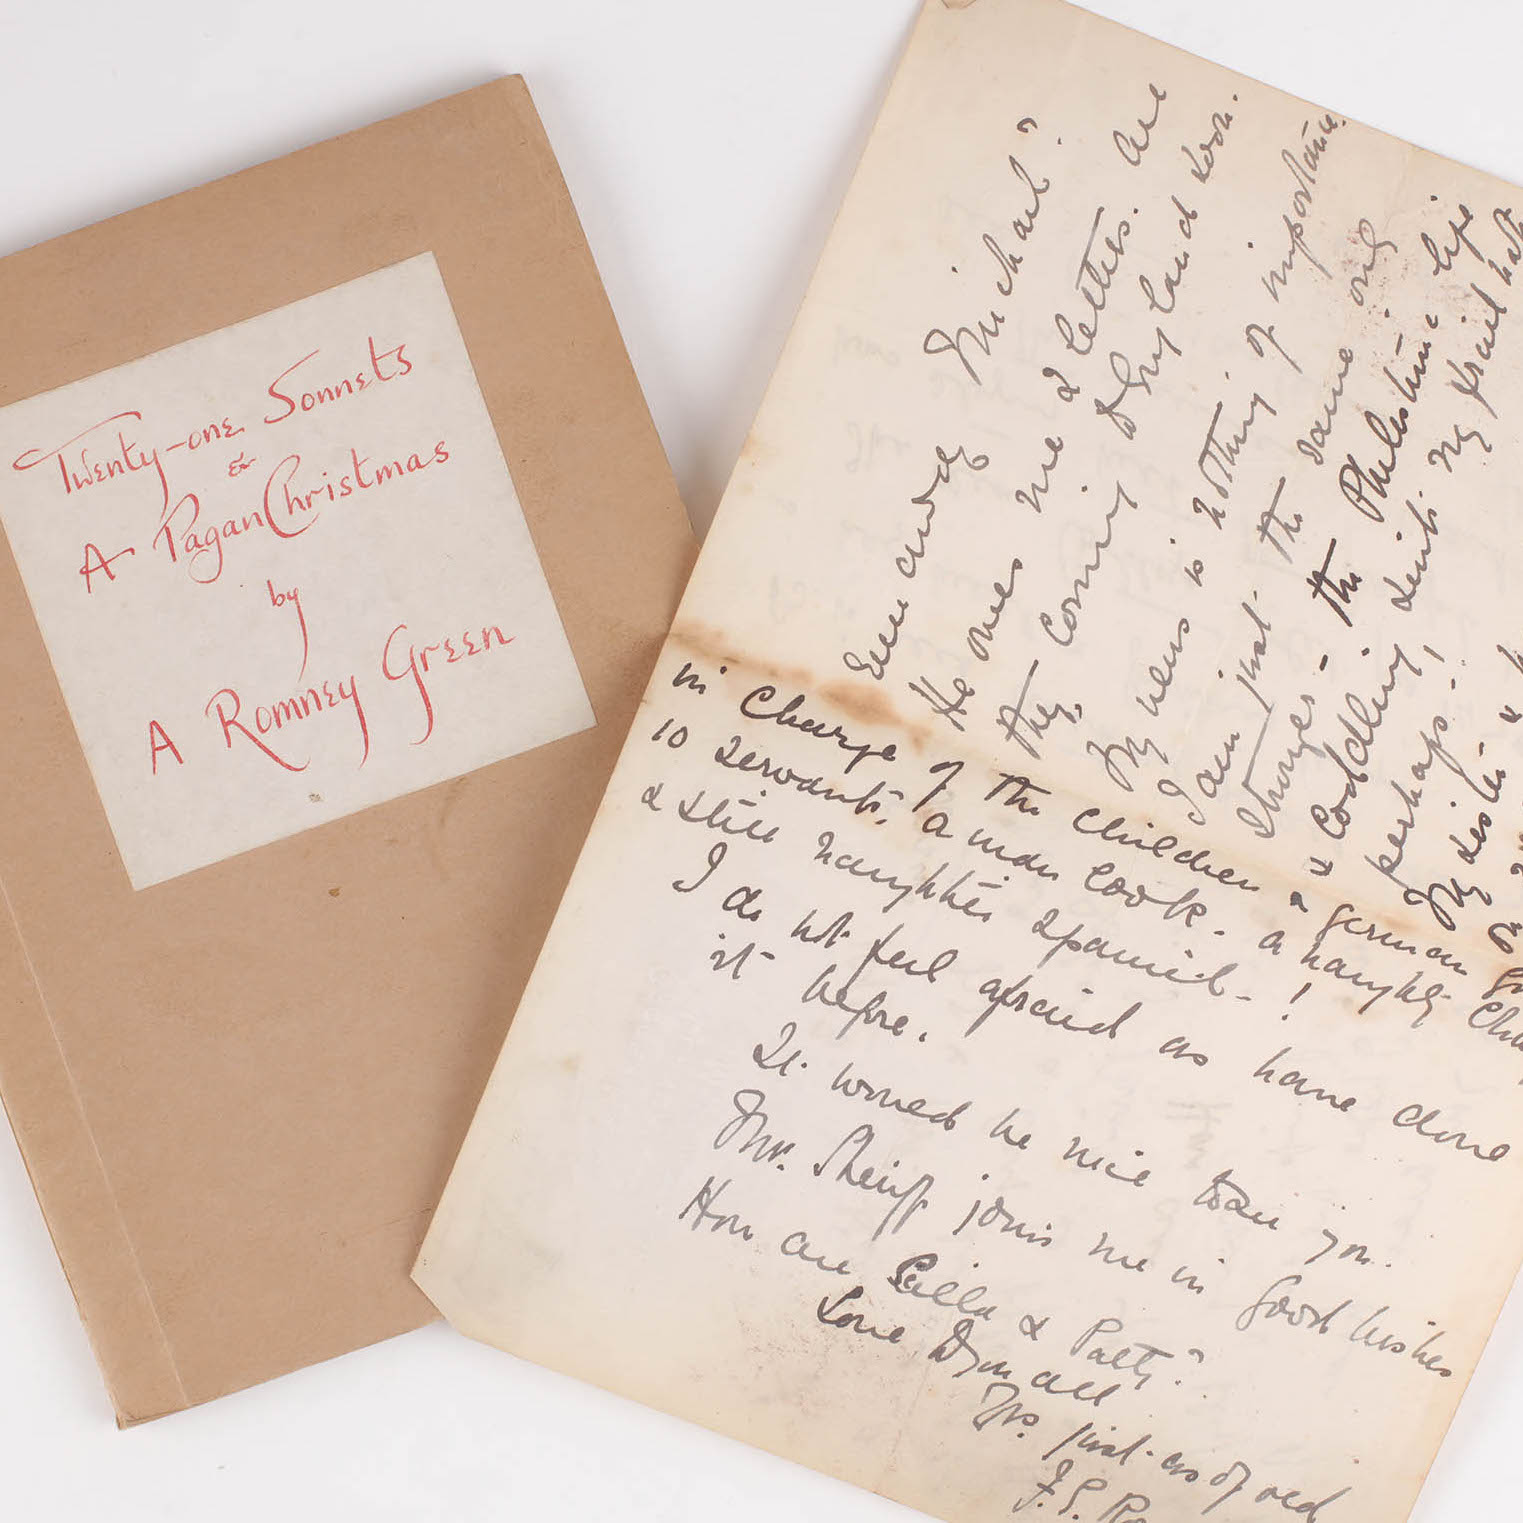 Twenty-one Sonnets
&
A Pagan Christmas
by
A Romney Green
Michael?
He owes me 2 letters. Are
they coming to England soon.
My news is nothing of importance.
I am just the same only
stronger - the Philistine life
& coddling suits my frail
perhaps!
My sister &
in charge of the children & german
10 servants, a man cook - a naughty
& still naughtier spaniel - !
I do not feel afraid as have done
it before.
It would be nice to see you.
Mr. Sheriff joins me in good wishes
How are Leilla & Patty?
Love to you all
Yrs. just as of old
F.S.